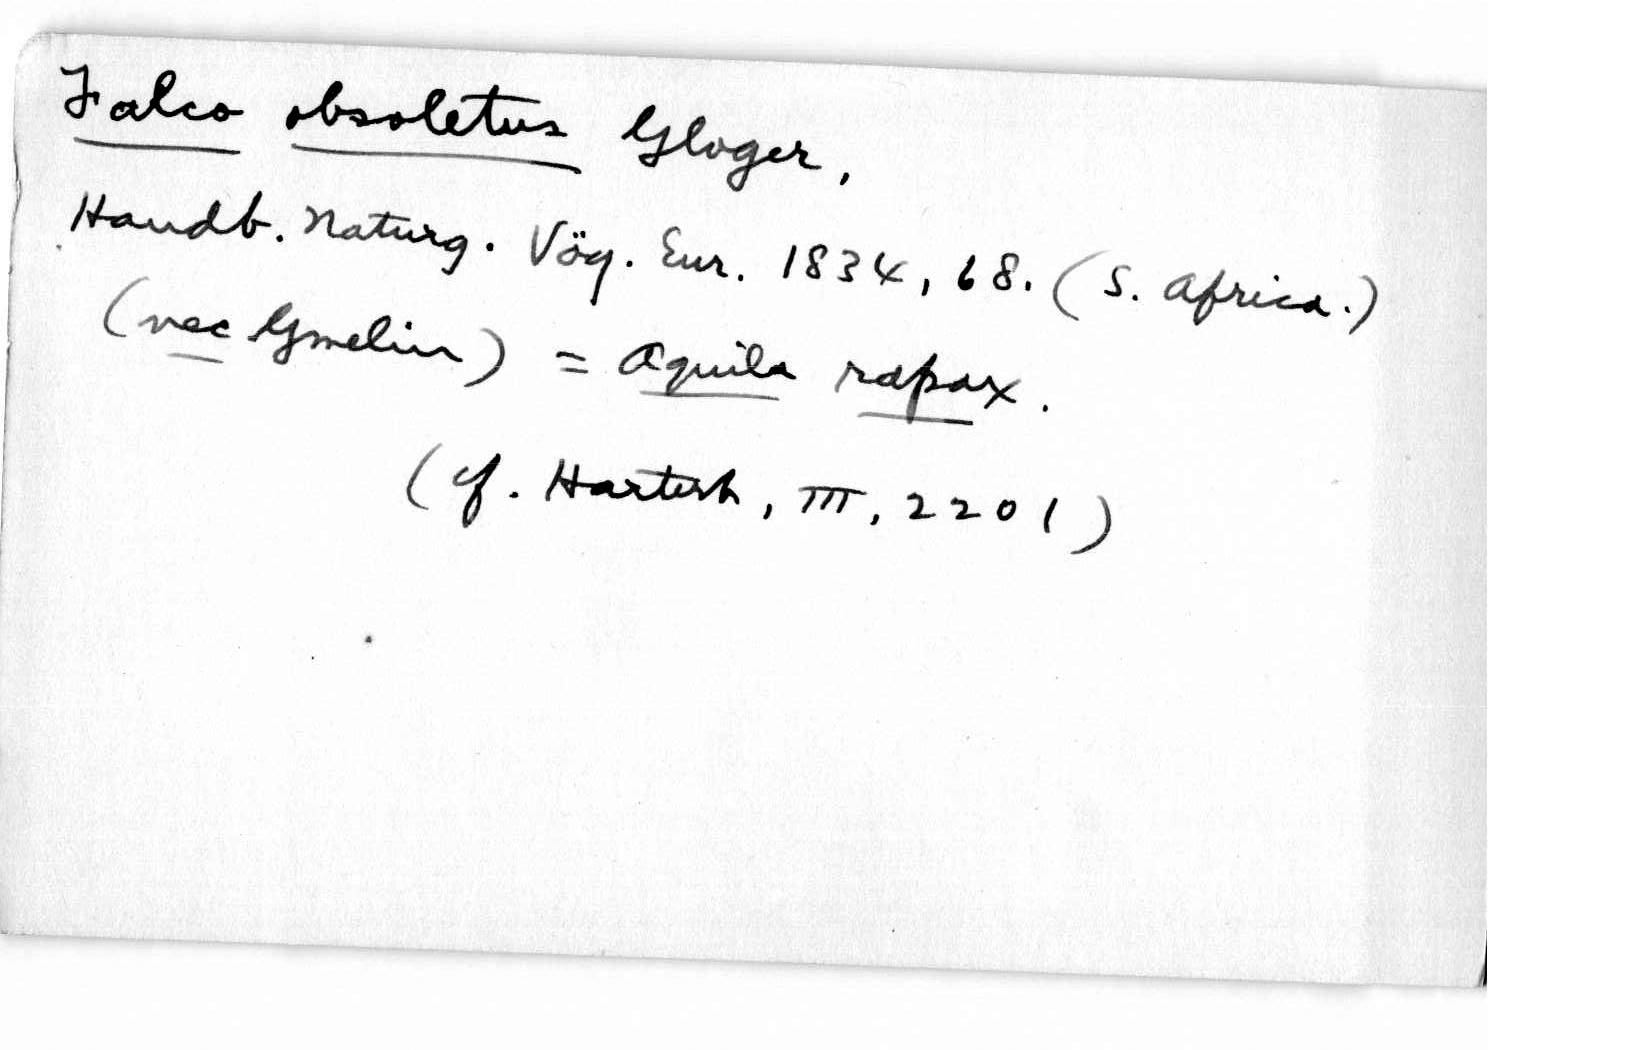 Falco obsoletus Gloger,
Handb. Naturg. Vög. Eur. 1834, 68. (S. Africa.)
(nec Gmelin) = Aquila rapax.
(cf. Hartert, III, 2201)